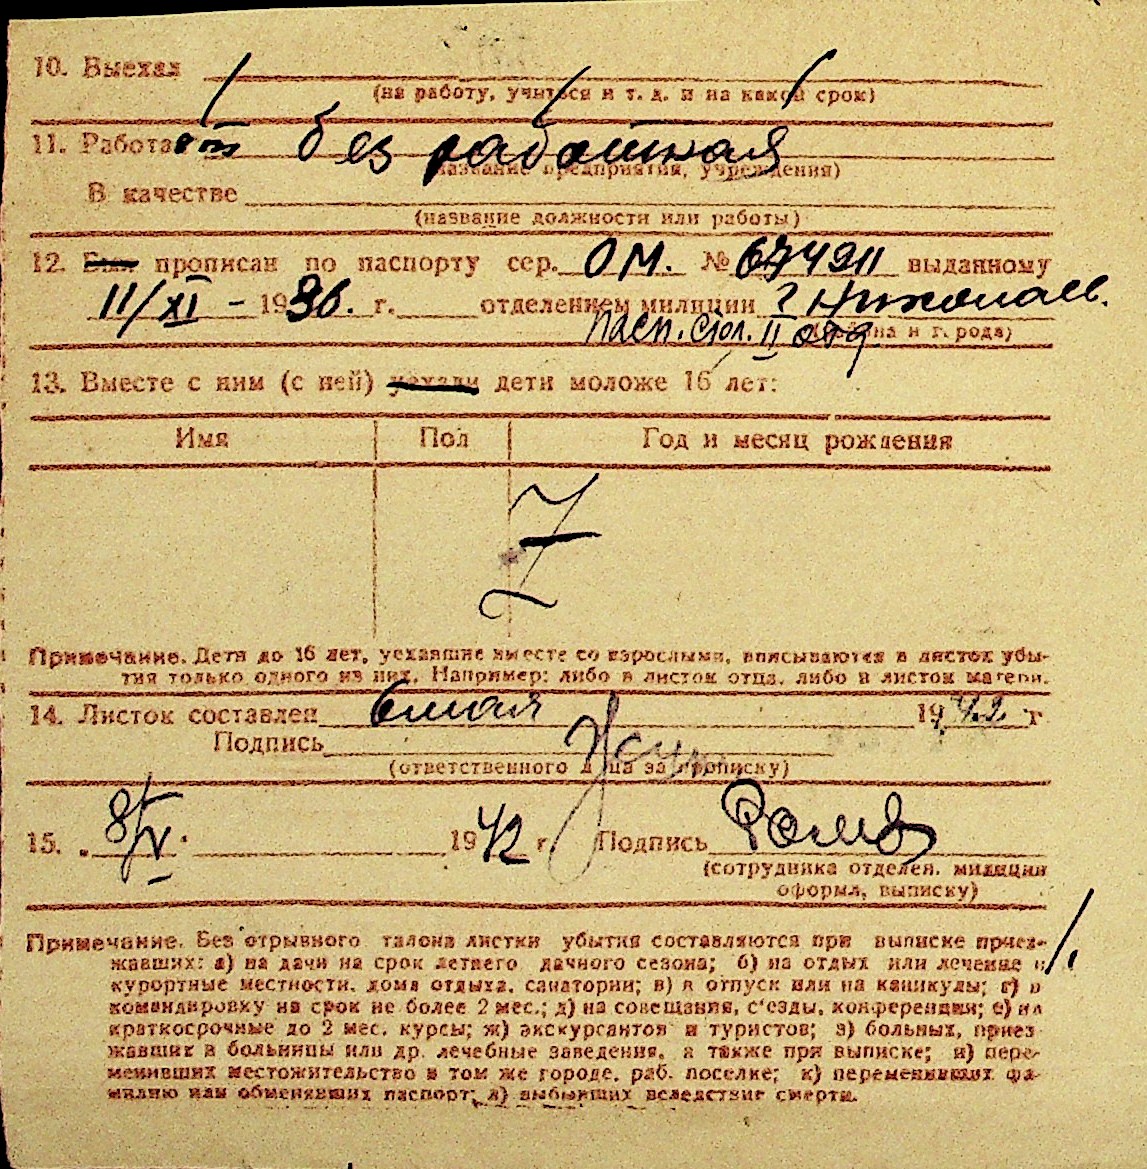 10. Выехал
(на работу, учиться и т. д. и на какой срок)
11. Работает без работная
(название предприятия, учреждения)
В качестве
(название должности или работы)
12. Был прописан по паспорту сер. ОМ. № 674911 выданному
11/XI - 1936. г. отделением милиции г Николаев.
пасп. стол. II отд
(района и г. рода)
13. Вместе с ним (с ней) уехали дети моложе 16 лет:
Имя Пол Год и месяц рождения
Z
Примечание. Дети до 16 лет, уехавшие вместе со взрослыми, вписываются в листок убы-
тия только одного из них. Например: либо в листок отца, либо в листок матери.
14. Листок составлен 6 мая 1942 г
Подпись
(ответственного лица за прописку)
15. 8/V 1942 г. Подпись
(сотрудника отделен. милиции
оформл, выписку)
Примечание. Без отрывного талона листки убытия составляются при выписке приез-
жавших: а) на дачи на срок летнего дачного сезона; б) на отдых или лечение в
курортные местности, дома отдыха, санатории; в) в отпуск или на каникулы; г) в
командировку на срок не более 2 мес.; д) на совещания, с'езды, конференции; е) на
краткосрочные до 2 мес. курсы; ж) экскурсантов и туристов; з) больных, приез
жавших в больницы или др. лечебные заведения, а также при выписке; и) пере-
менивших местожительство в том же городе, раб. поселке; к) переменивших фа-
милию или обменявших паспорт; л) выбывших вследствие смерти.